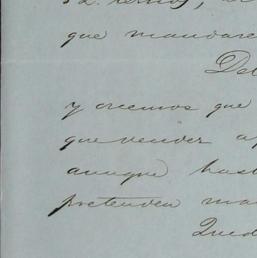 que mandare
Deb
y creemos que
que vender a
aunque hast
pretenden ma
Qued